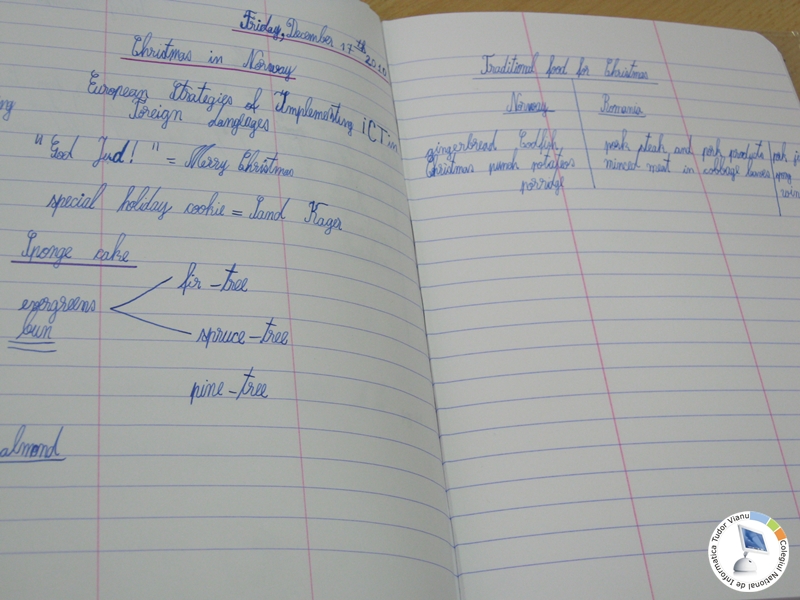 Friday, December 17th 2010
Christmas in Norway
European Strategies of Implementing iCT in
Foreign Langleages
ng
"God Jud!" = Merry Christmas
special holiday cookie = Sand Kager
Sponge cake
evergreens
fir-tree
bun
spruce-tree
pine-tree
almond
Traditional food for Christmas
Norway
Romania
gingerbread Codfish
Christmas punch potatoes
porridge
pork steak and pork products
minced meat in cabbage leaves
Colegiul National de Informatica Tudor Vianu